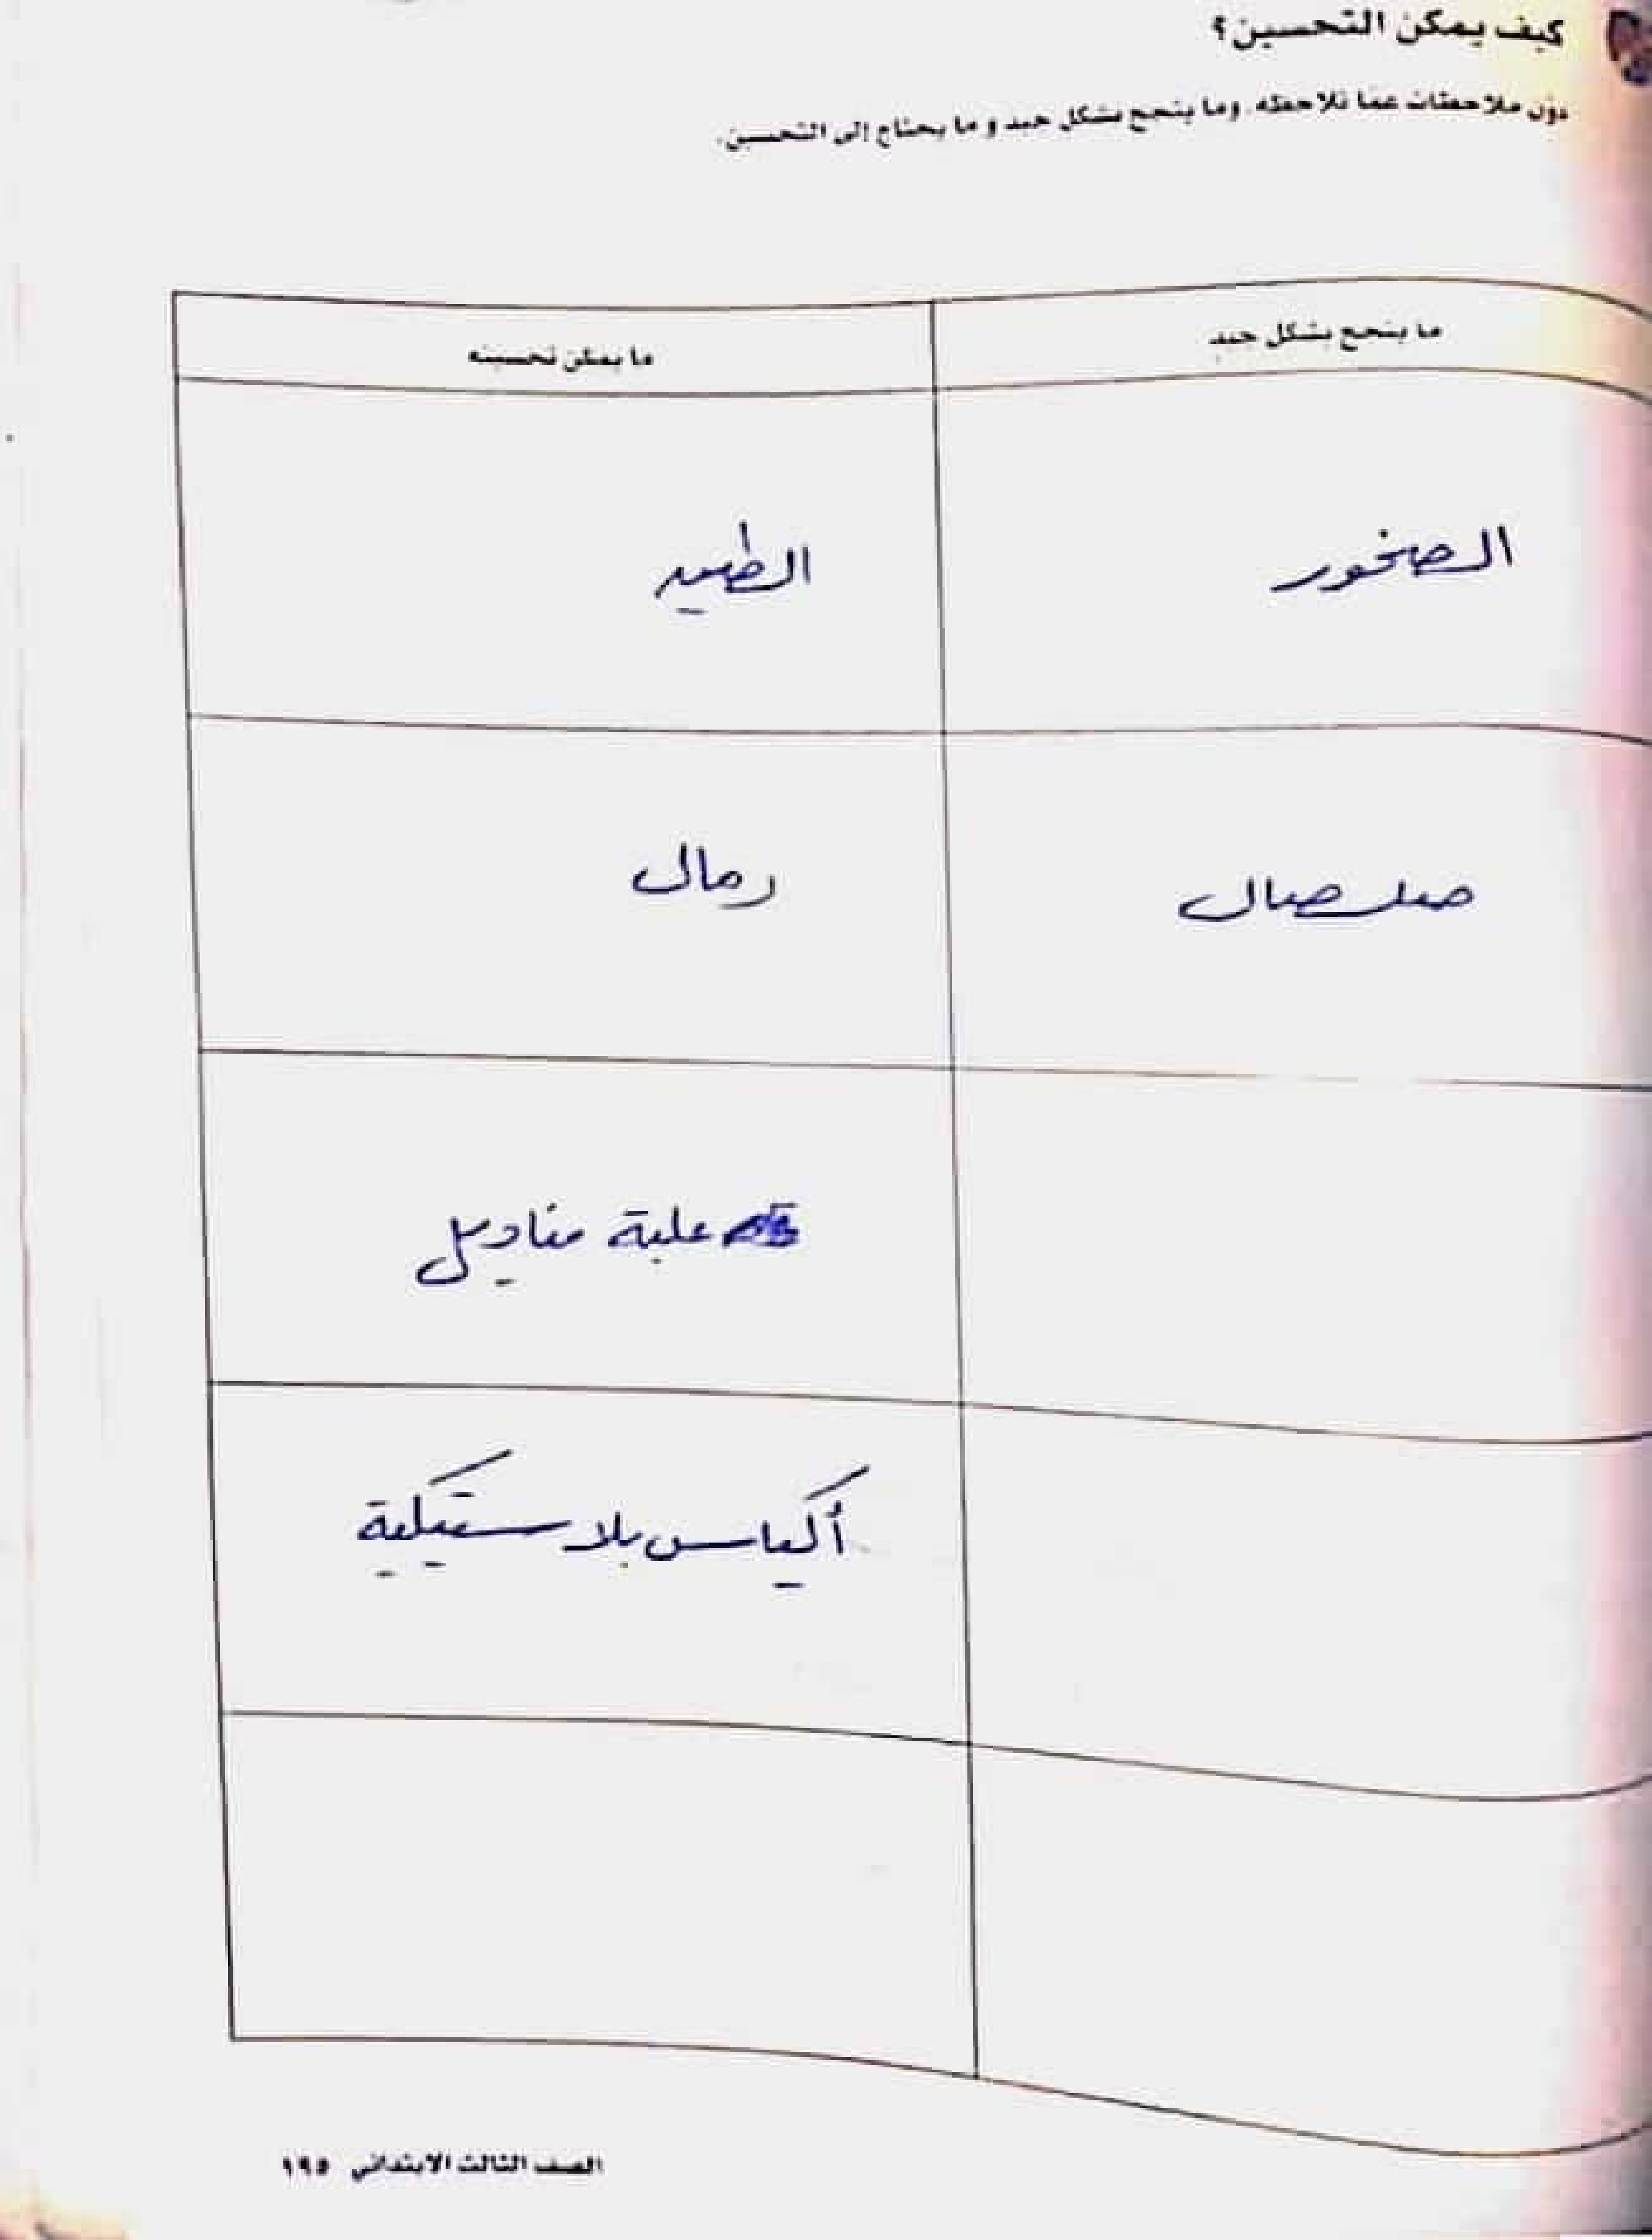 كيف يمكن التحسين؟
دوّن ملاحظات عمّا تلاحظه، وما ينجح بشكل جيد و ما يحتاج إلى التحسين.
ما ينجح بشكل جيد
ما يمكن تحسينه
الصخور
الطين
صلصال
رمال
علبة مناديل
أكياس بلاستيكية
الصف الثالث الابتدائي ١٩٥